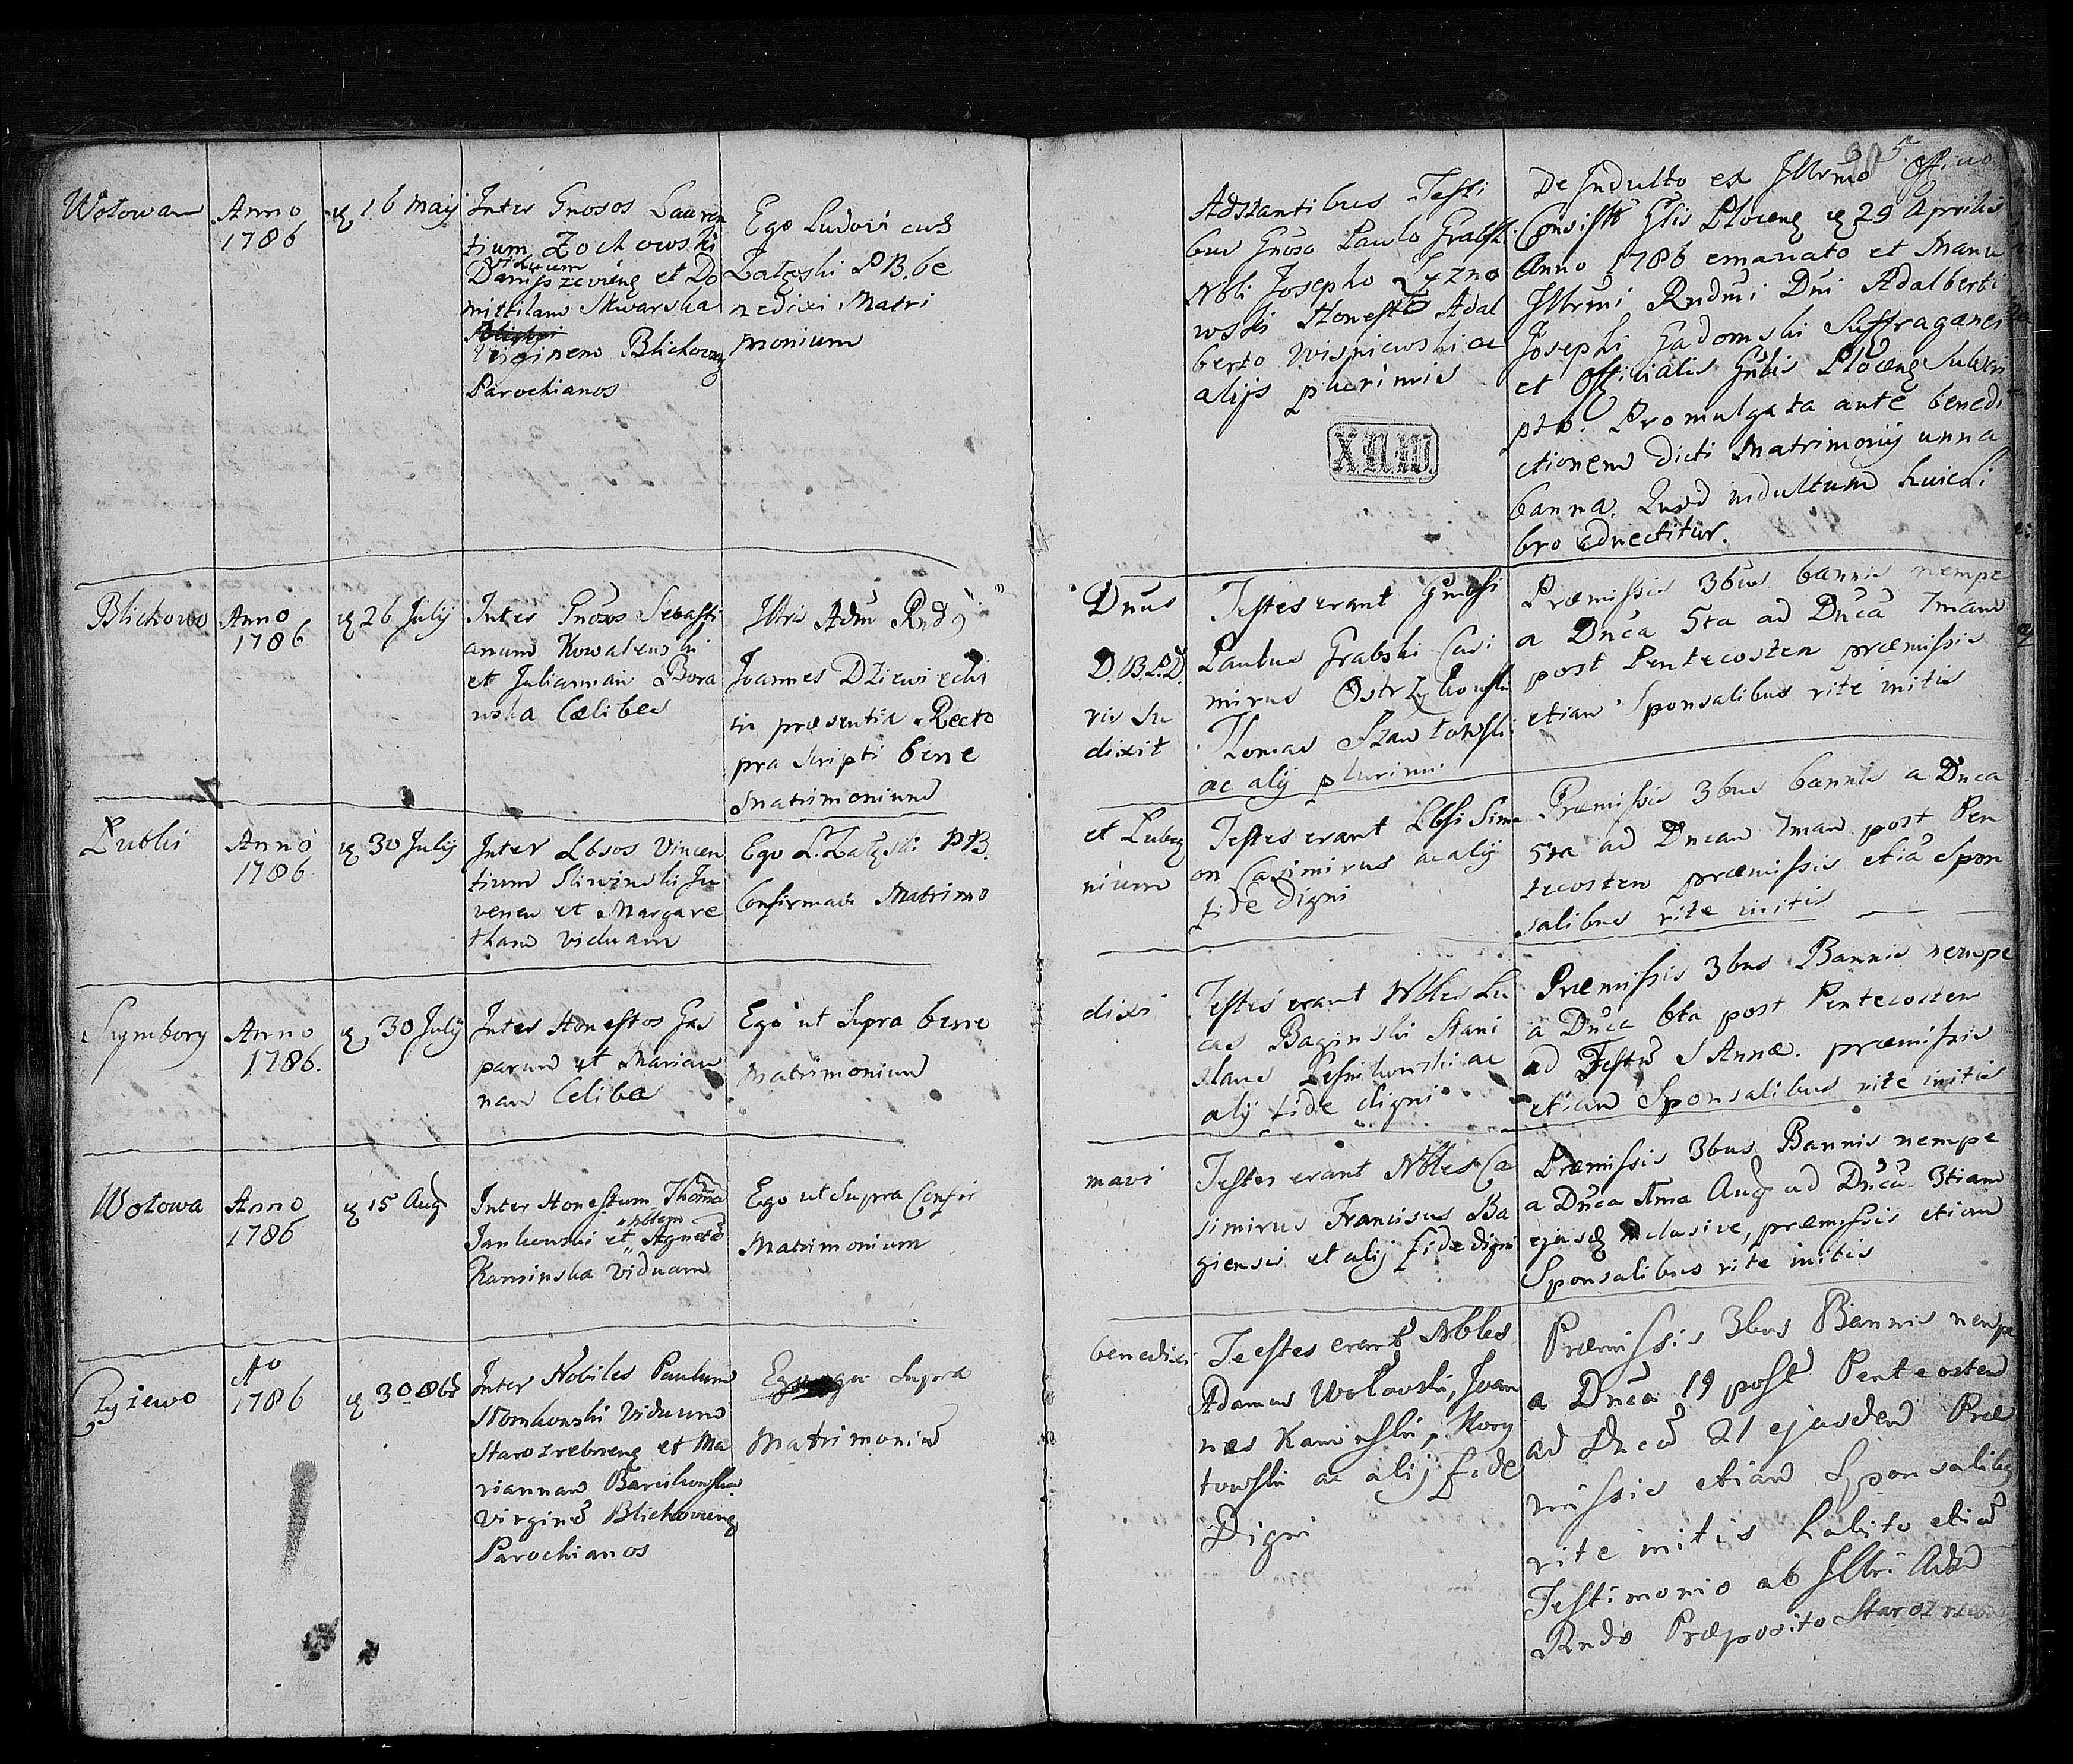 Wołowa
Anno
1786
16 Maij
Inter Gnosos Lauren
tium Żochowski
Viduum
et Do
mittilam Skwarska
Virginem
Parochianos
Ego Ludovicus
PB. be
nedixi Matri
monium
Adstantibus Testi
bus Gnoso Paulo Grabski
Nbli Josepho Łyzno
wski Honesto Adal
berto Wisniewski ac
alijs plurimis
X.U.W.
De Indulto ex Illrmo
29 Aprilis
Anno 1786 emanato et Manu
Illrmi Rndmi Dni Adalberti
Josephi Gadomski Suffraganei
et Officialis Gnlis Subscri
pto. Promulgata ante benedi
ctionem dicti Matrimonij unna
banna. Quod indultum huic Li
bro adnectitur.
Blichowo
Anno
1786
26 Julij
Inter Gnosos Sebasti
anum Kowalewski
et Juliannam Bora
wska Cælibes
Illris Adm Rnd
Joannes Dziewiecki
in præsentia Recto
pra scripti bene
Matrimonium
Dnus
ris Su
dixit
Testes erant Gnosi
Paulus Grabski Casi
mirus Ostrzykowski
Thomas Szawłowski
ac alij plurimi
Præmissis 3bus bannis nempe
a Dnca 5ta ad Dncā 7mam
post Pentecosten præmissis
etiam Sponsalibus rite initis
Anno
1786
30 Julij
Inter Lbsos Vincen
tium Sliwinski Ju
venem et Margare
tham viduam
PB.
Confirmavi Matrimo
nium
Testes erant Lbsi Sime
on Casimirus ac alij
fide digni
Præmissis 3bus bannis a Dnca
5ta ad Dncam 7mam post Pen
tecosten præmissis etiā Spon
salibus rite initis
Anno
1786.
30 Julij
Inter Honestos Gas
parum et Marian
nam Celibes
Ego ut Supra bene
Matrimonium
dixi
Testes erant Nbles Lu
cas Baginski Stani
slaus ac
alij fide digni
Præmissis 3bus Bannis nempe
a Dnca 6ta post Pentecosten
ad Festū S Annæ. præmissis
etiam Sponsalibus rite initis
Wołowa
Anno
1786
15 Aug
Inter Honestum Thomā
Nblem
Jankowski et Agnetē
Kaminska Viduam
Ego ut Supra Confir
Matrimonium
mavi
Testes erant Nbles Ca
simirus Franciscus Ba
gienski et alij fide digni
Præmissis 3bus Bannis nempe
a Dnca Aug ad Dncā 3tiam
inclusive, præmissis etiam
Sponsalibus rite initis
Zyżewo
Ao
1786
30 8bs
Inter Nobiles Paulum
Słomkowski Viduum
et Ma
riannam Barcikowska
Virginē
Parochianos
Supra
Matrimoniū
benedixi
Testes erant Nbles
Adamus Wołowski, Joan
nes Kaminski, Kory
towski ac alij fide
Digni
Præmissis 3bus Bannis nempe
a Dnca 19 post Pentecosten
ad Dncā 21 ejusdem Præ
missis etiam Sponsalibus
rite initis habito etiā
Testimonio ab Illri Adm
Rndo Præposito